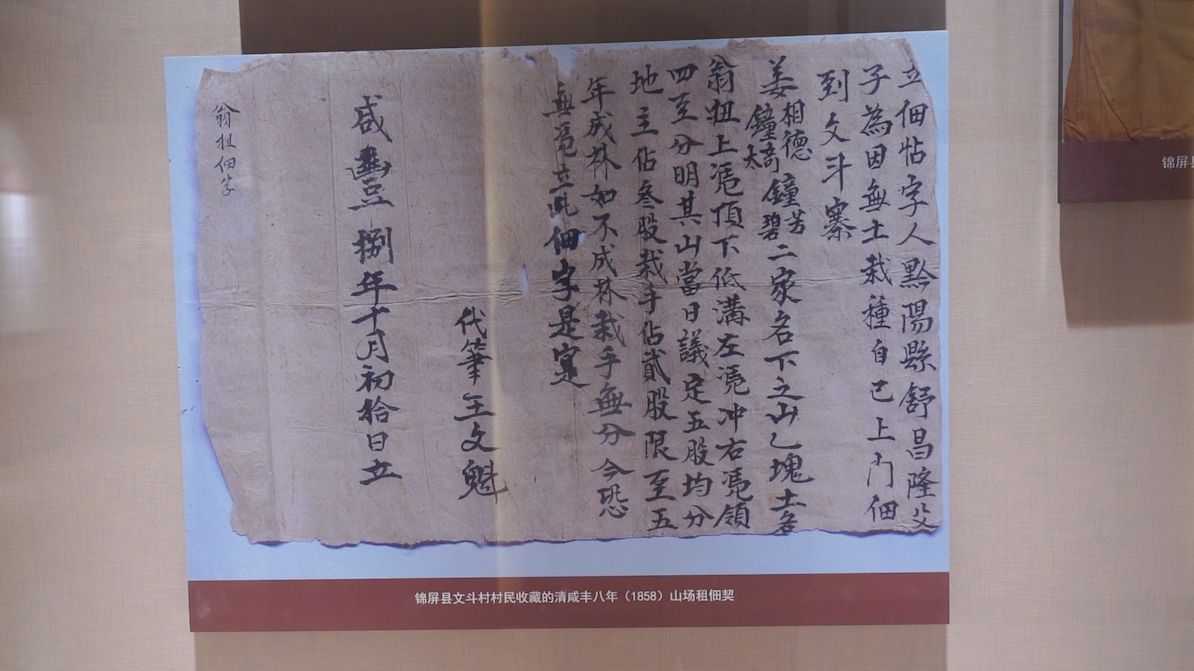 立佃帖字人黔陽縣舒昌隆父
子為因無土栽種自己上门佃
到文斗寨
姜相德鐘奇鐘芳鐘太鐘碧二家名下之山乙塊土名
翁扭上凴頂下低溝左凴冲右凴領
四至分明其山當日議定五股均分
地主佔叁股栽手佔貳股限至五
年成林如不成林栽手無分今恐
無凴立此佃字是寔
代筆王文魁
咸豐捌年十月初拾日立
翁扭佃字
锦屏县文斗村村民收藏的清咸丰八年（1858）山场租佃契
锦屏县